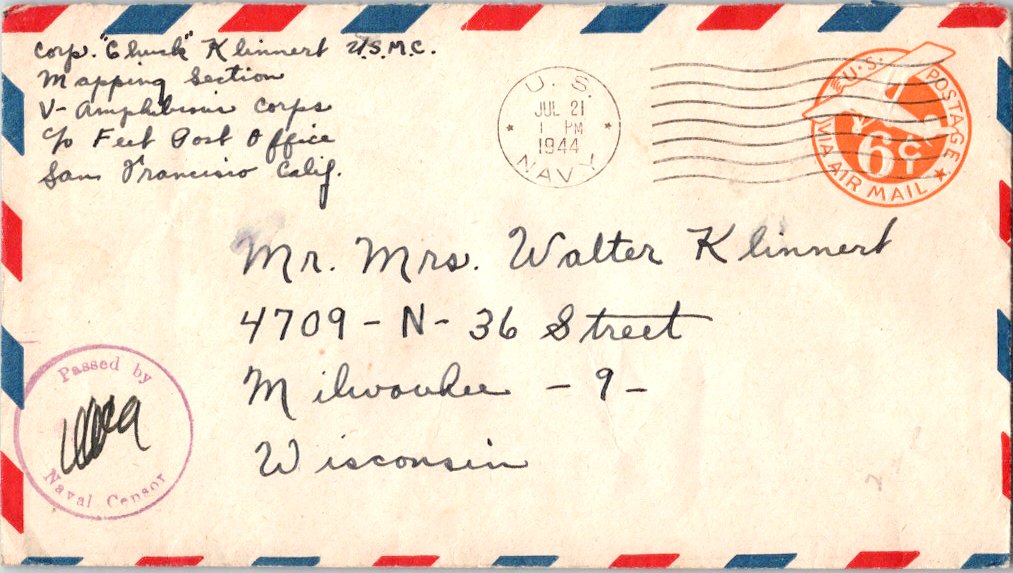 Corp. "Chuck" Klinnert U.S.M.C.
Mapping Section
V- Amphibious Corps
c/o Feet Post Office
San Francisio Calif.
U. S.
JUL 21
1 PM
1944
NAVY
U.S. POSTAGE
6¢
VIA AIR MAIL
Mr. Mrs. Walter Klinnert
4709 - N - 36 Street
Milwaukee - 9 -
Wisconsin
Passed by
Naval Censor
2